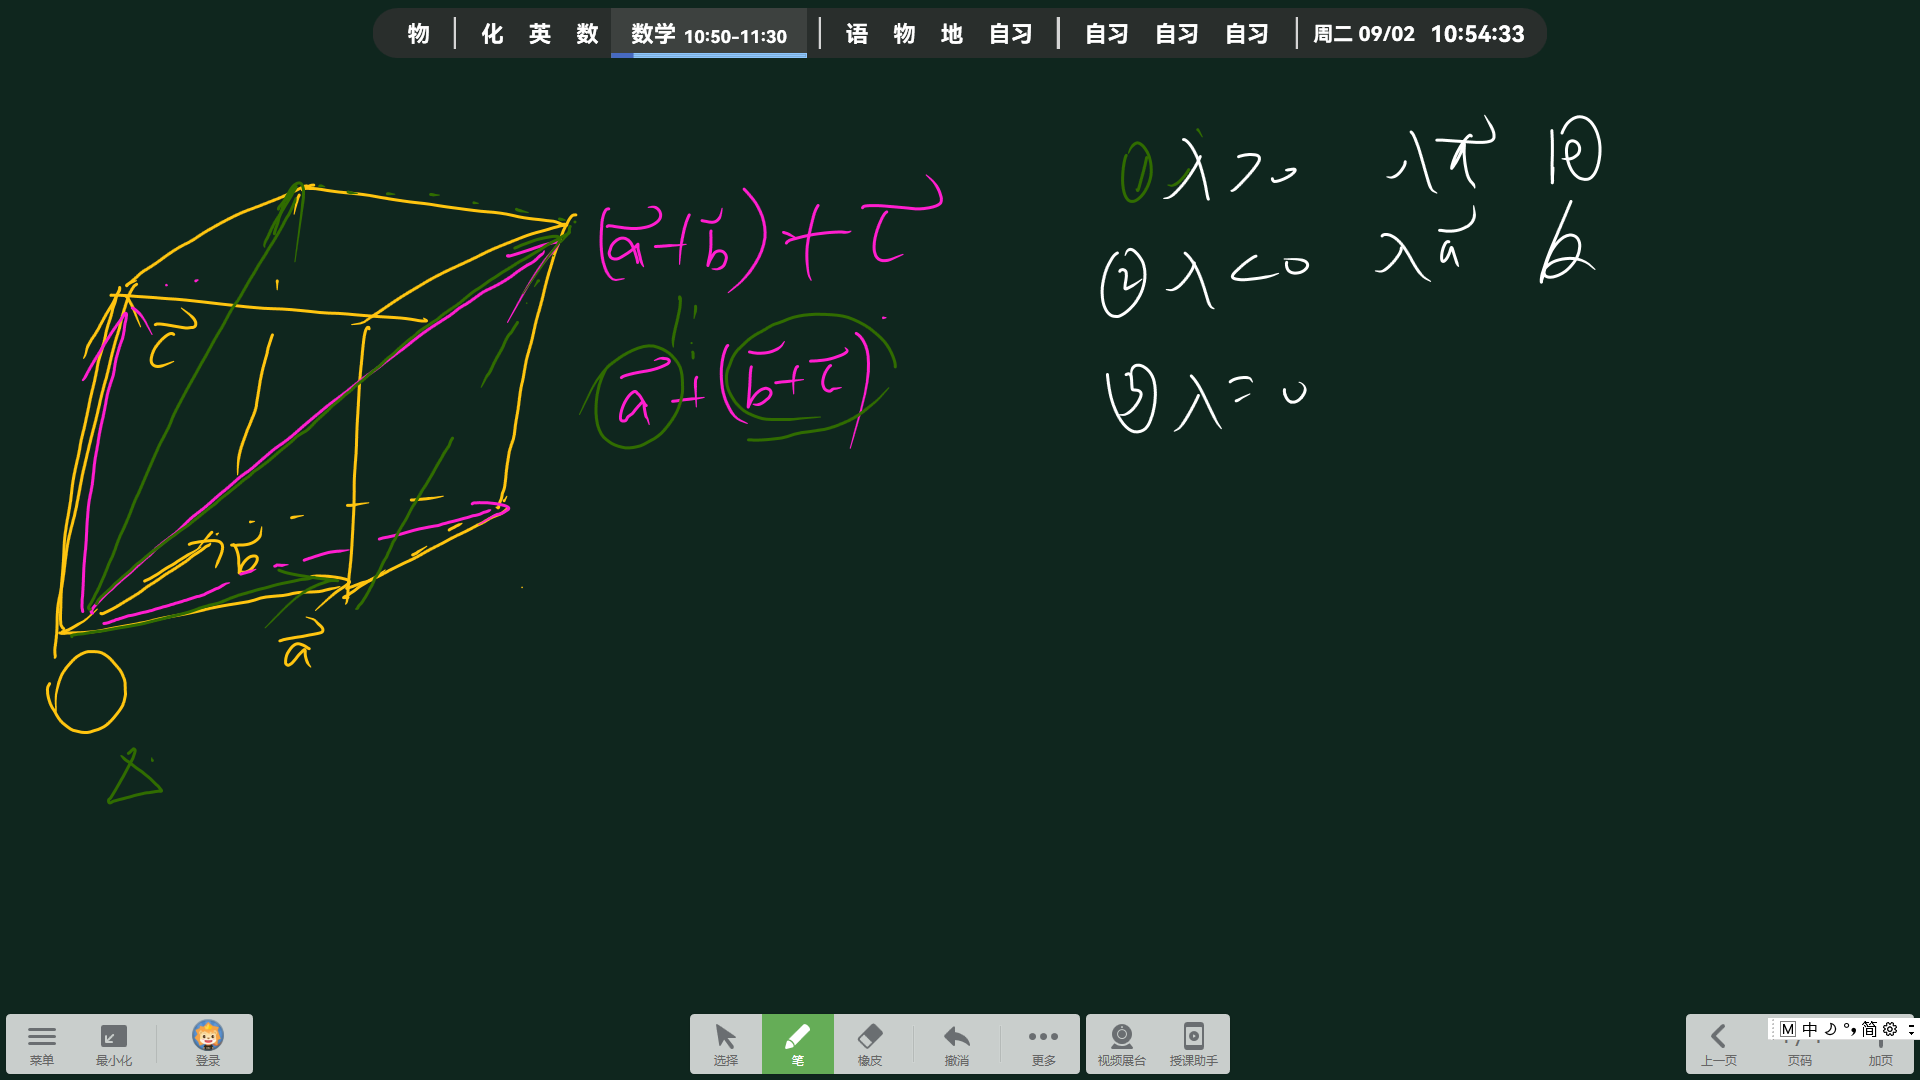 物 | 化 英 数 数学 10:50-11:30 | 语 物 地 自习 | 自习 自习 自习 | 周二 09/02 10:54:33
(a⃗+b⃗)+c⃗
a⃗+(b⃗+c⃗)
c⃗
b⃗
a⃗
O
① λ>0 λa⃗ 同
② λ<0 λa⃗
③ λ=0
菜单 最小化 登录 选择 笔 橡皮 撤消 更多 视频展台 授课助手 上一页 页码 加页
M 中 简